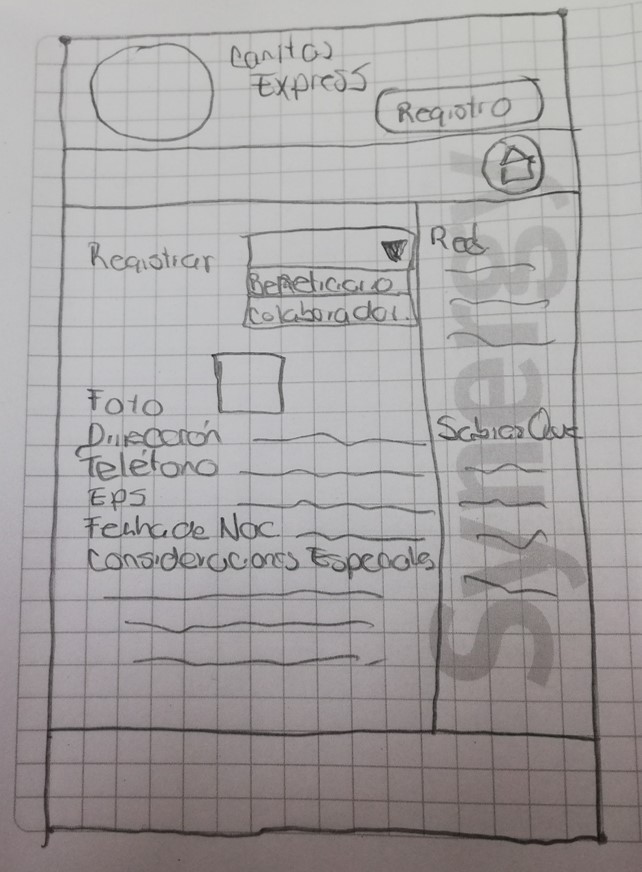 Canitas
Express
Registro
Registrar
Beneficiario
Colaborador.
Red
Foto
Dirección
Teléfono
EPS
Fecha de Nac
Consideraciones Especiales
Sabias Que
Synergy